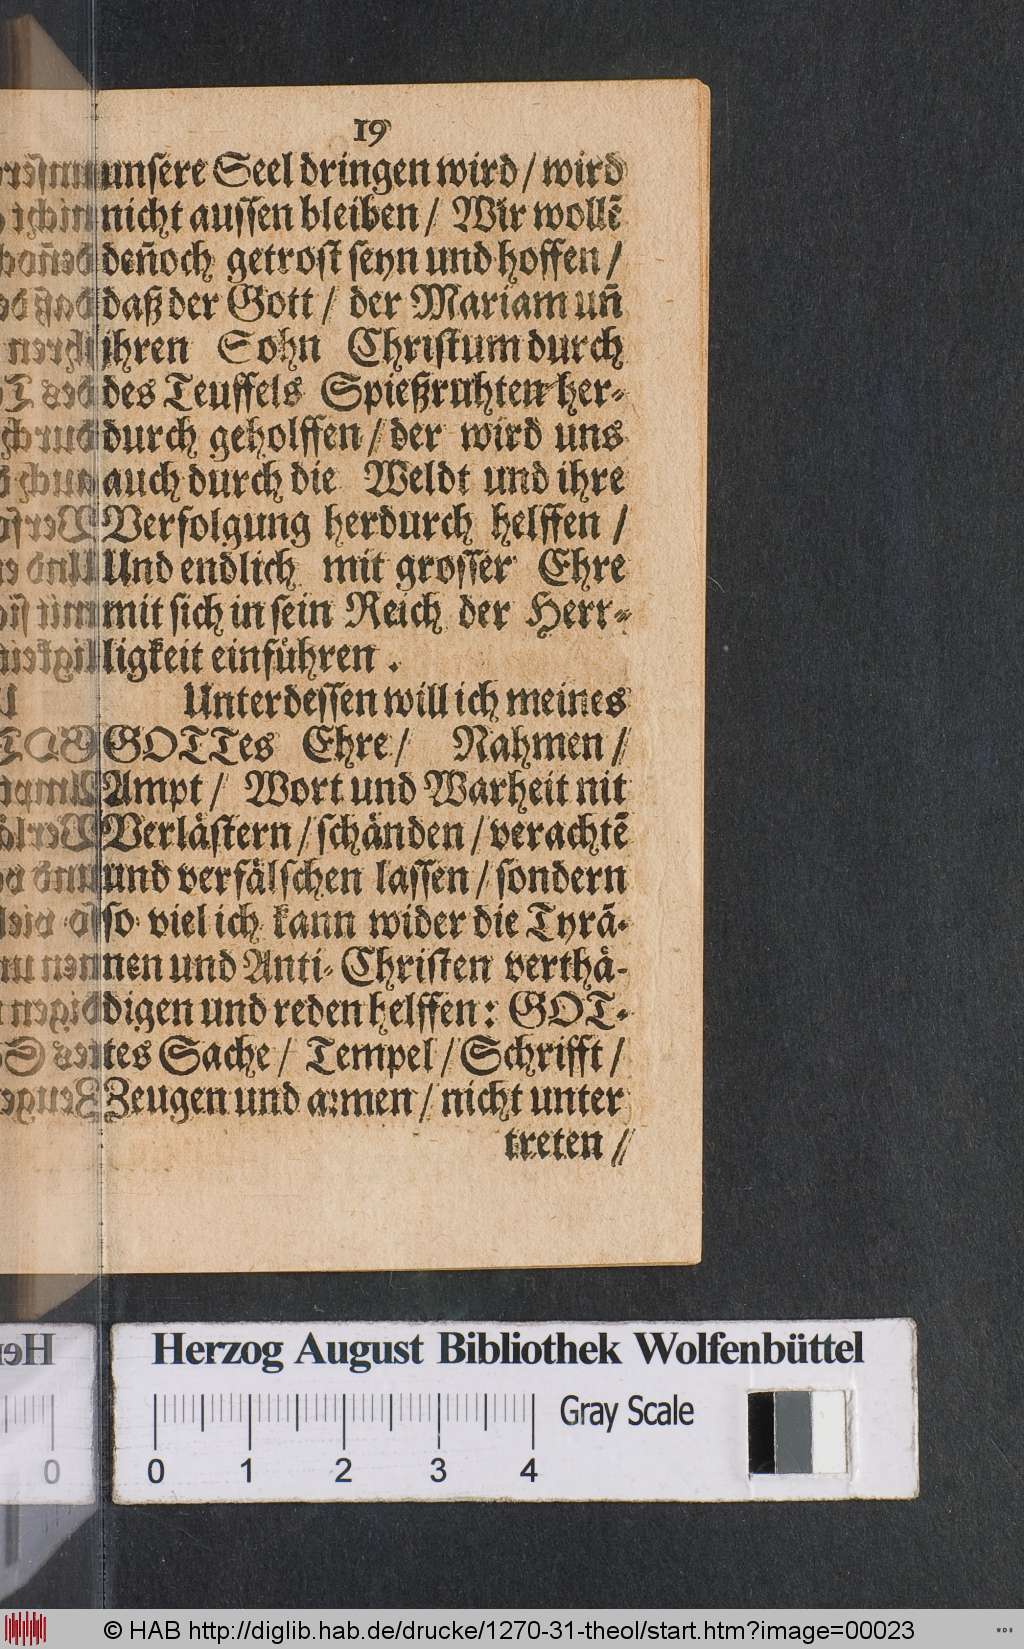 19
unsere Seel dringen wird / wird
nicht aussen bleiben / Wir wollẽ
deñoch getrost seyn und hoffen /
daß der Gott / der Mariam uñ
ihren Sohn Christum durch
des Teuffels Spießruhten her-
durch geholffen / der wird uns
auch durch die Weldt und ihre
Verfolgung herdurch helffen /
Und endlich mit grosser Ehre
mit sich in sein Reich der Herr-
ligkeit einführen .
Unterdessen will ich meines
GOTTes Ehre / Nahmen /
Ampt / Wort und Warheit nit
Verlästern / schänden / verachtẽ
und verfälschen lassen / sondern
so viel ich kann wider die Tyrã-
nen und Anti-Christen verthä-
digen und reden helffen: GOT-
tes Sache / Tempel / Schrifft /
Zeugen und armen / nicht unter
treten /
Herzog August Bibliothek Wolfenbüttel
Gray Scale
0 1 2 3 4
© HAB http://diglib.hab.de/drucke/1270-31-theol/start.htm?image=00023